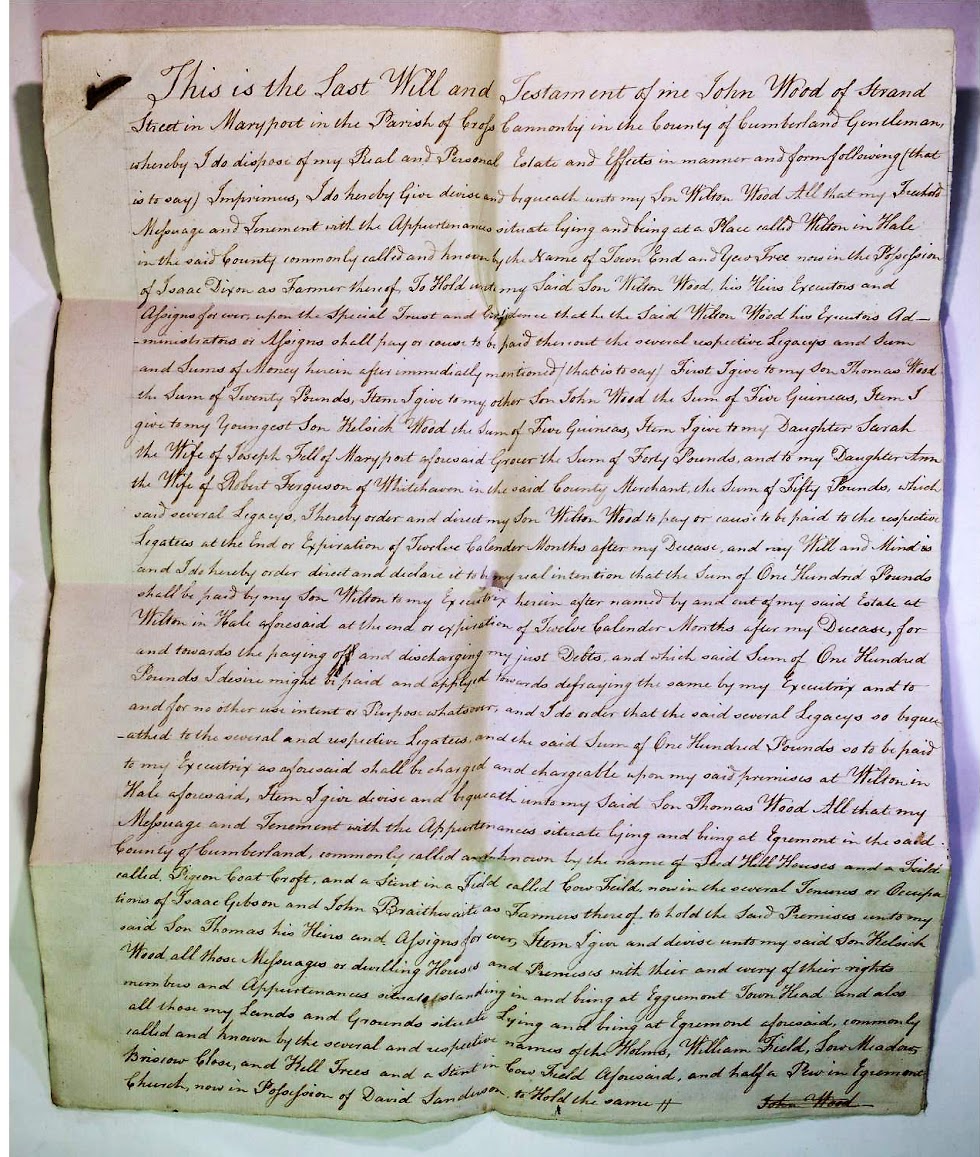 This is the Last Will and Testament of me John Wood of Strand
Street in Maryport in the Parish of Cross Cannonby in the County of Cumberland Gentleman,
whereby I do dispose of my Real and Personal Estate and Effects in manner and form following (that
is to say) Imprimus, I do hereby Give devise and bequeath unto my Son Wilton Wood All that my Freehold
Messuage and Tenement with the Appurtenances situate lying and being at a Place called Wilton in Hale
in the said County commonly called and known by the Name of Town End and Yew Tree now in the Possession
of Isaac Dixon as Farmer thereof, To Hold unto my Said Son Wilton Wood, his Heirs Executors and
Assigns for ever, upon the Special Trust and Confidence that he the Said Wilton Wood his Executors Ad-
-ministrators or Assigns shall pay or cause to be paid thereout the several respective Legacys and Sum
and Sums of Money herein after immedially mentioned (that is to say) First I give to my Son Thomas Wood
the Sum of Twenty Pounds, Item I give to my other Son John Wood the Sum of Five Guineas, Item I
give to my Youngest Son Kelsick Wood the Sum of Five Guineas, Item I give to my Daughter Sarah
the Wife of Joseph Fell of Maryport aforesaid Grocer the Sum of Forty Pounds, and to my Daughter Ann
the Wife of Robert Ferguson of Whitehaven in the said County Merchant, the Sum of Fifty Pounds, which
said several Legacys, I hereby order and direct my Son Wilton Wood to pay or cause to be paid to the respective
Legatees at the End or Expiration of Twelve Calender Months after my Decease, and my Will and Mind is
and I do hereby order direct and declare it to be my real intention that the Sum of One Hundred Pounds
shall be paid by my Son Wilton to my Executrix herein after named by and out of my said Estate at
Wilton in Hale aforesaid at the end or expiration of Twelve Calender Months after my Decease, for
and towards the paying off and discharging my just Debts, and which said Sum of One Hundred
Pounds I desire might be paid and applyed towards defraying the same by my Executrix and to
and for no other use intent or Purpose whatsoever, and I do order that the said several Legacys so beque
-athed to the several and respective Legatees, and the said Sum of One Hundred Pounds so to be paid
to my Executrix as aforesaid shall be charged and chargeable upon my said premises at Wilton in
Hale aforesaid, Item I give devise and bequeath unto my Said Son Thomas Wood All that my
Messuage and Tenement with the Appurtenances situate lying and being at Egremont in the said
County of Cumberland, commonly called and known by the name of Hill Houses and a Field
called Pigeon Coat Croft, and a Stint in a Field called Cow Field, now in the several Tenures or Occupa
tions of Isaac Gibson and John Braithwaite as Farmers thereof, to hold the Said Premises unto my
said Son Thomas his Heirs and Assigns for ever, Item I give and devise unto my said Son Kelsick
Wood all those Messuages or dwelling Houses and Premises with their and every of their rights
members and Appurtenances situate standing in and being at Eggremont Town Head and also
all those my Lands and Grounds situate Lying and being at Egremont aforesaid, commonly
called and known by the several and respective names of the Holms, William Field, Low Meadow,
Briscow Close, and Hell Trees and a Stint in Cow Field Aforesaid, and half a Pew in Egremont
Church, now in Possession of David Sanderson, to Hold the same // John Wood